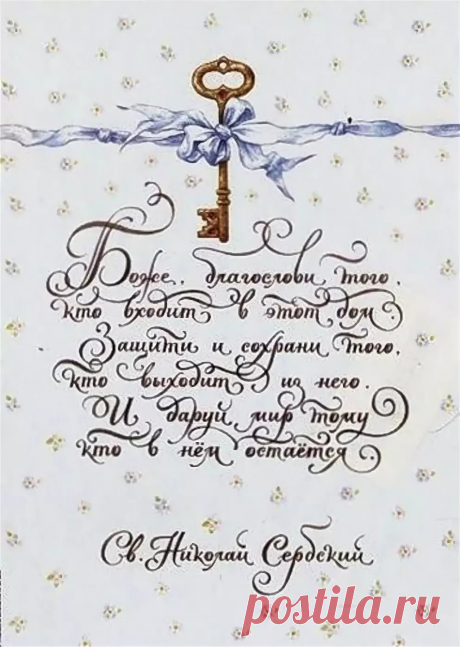 Боже, благослови того,
кто входит в этот дом
Защити и сохрани того,
кто выходит из него.
И даруй мир тому
кто в нём остаётся
Св. Николай Сербский
postila.ru